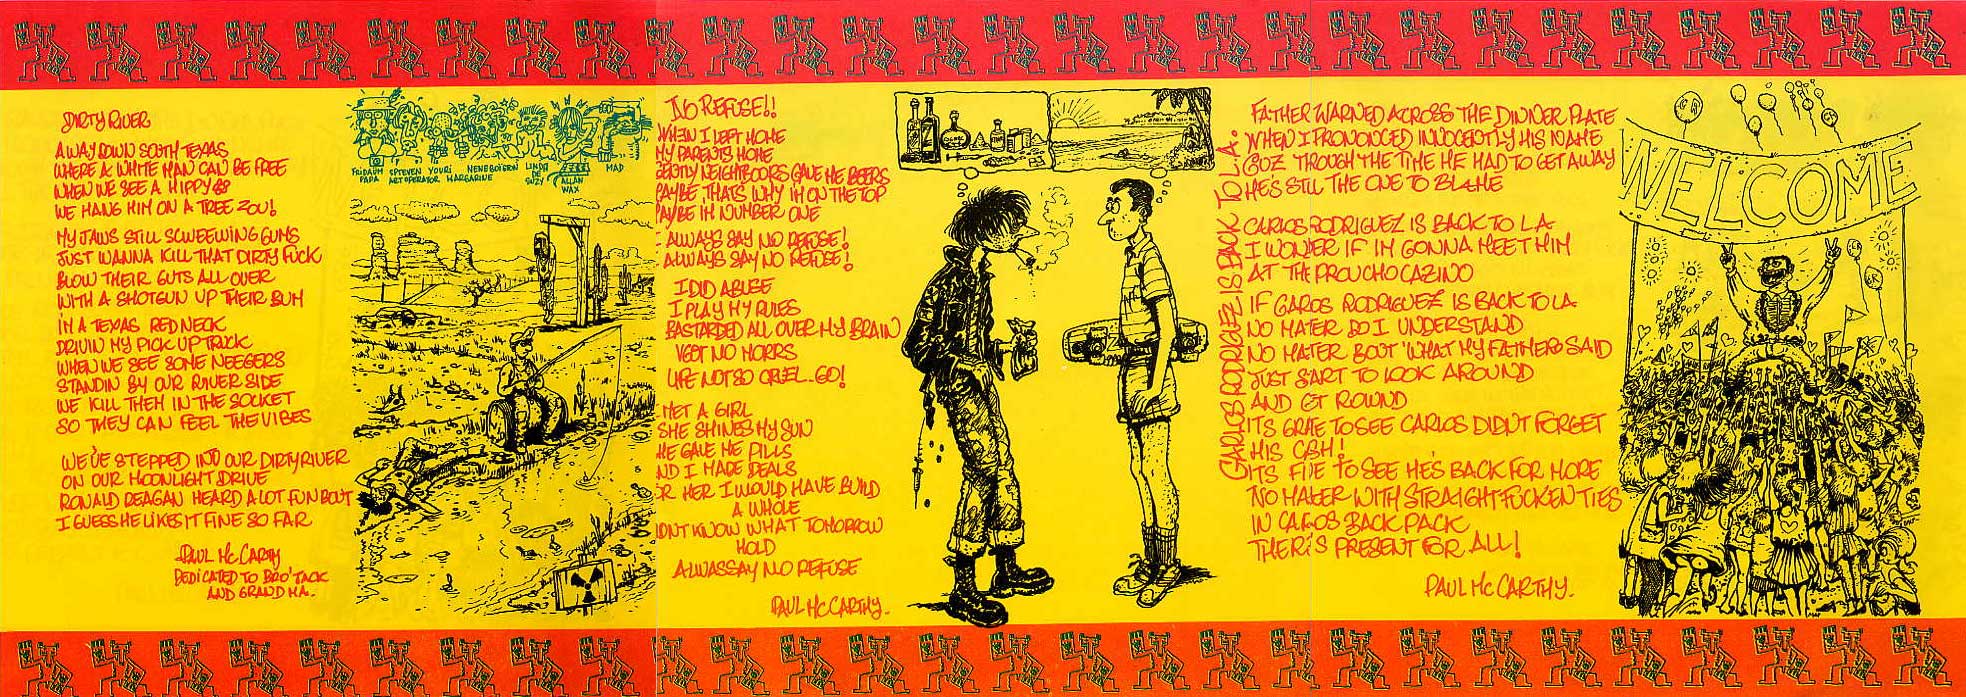 DIRTY RIVER
AWAY DOWN SOUTH TEXAS
WHERE A WHITE MAN CAN BE FREE
WHEN WE SEE A HIPPY
WE HANG HIM ON A TREE ZOU!
MY JAWS STILL SCWEEWING GUMS
JUST WANNA KILL THAT DIRTY FUCK
BLOW THEIR GUTS ALL OVER
WITH A SHOTGUN UP THEIR BUM
I'M A TEXAS REDNECK
DRIVIN MY PICK UP TRUCK
WHEN WE SEE SOME NEEGERS
STANDIN BY OUR RIVER SIDE
WE KILL THEM IN THE SOCKET
SO THEY CAN FEEL THE VIBES
WE'VE STEPPED INTO OUR DIRTY RIVER
ON OUR MOONLIGHT DRIVE
RONALD REAGAN HEARD A LOT FUN BOUT
I GUESS HE LIKES IT FINE SO FAR
PAUL McCARTHY
DEDICATED TO BRO'TACK
AND GRAND MA.
FRIDAÜM PAPA
SPTEVEN ART OPERATOR
YOURI MARGARINE
NENEBOIGRN
LINDA DE SUZY
ALLAN WAX
MAD
NO REFUSE!!
WHEN I LEFT HOME
MY PARENTS HOME
NEIGHTBOORS GAVE ME BEERS
THATS WHY I'M ON THE TOP
I'M NUMBER ONE
I ALWAYS SAY NO REFUSE!
ALWAYS SAY NO REFUSE!
I DID ABUSE
I PLAY MY RULES
BASTARDED ALL OVER MY BRAIN
VGOT NO MORRS
LIFE NOT SO CRUEL..GO!
MET A GIRL
SHE SHINES MY SUN
HE GAVE ME PILLS
ND I MADE DEALS
OR HER I WOULD HAVE BUILD
A WHOLE
IDNT KNOW WHAT TOMORROW
HOLD
ALWASSAY NO REFUSE
PAUL McCARTHY.
CARLOS RODRIGUEZ IS BACK TO L.A.
FATHER WARNED ACROSS THE DINNER PLATE
WHEN I PRONONCED INNOCENTLY HIS NAME
CUZ THROUGH THE TIME HE HAD TO GET AWAY
HE'S STIL THE ONE TO BLAME
CARLOS RODRIGUEZ IS BACK TO LA
I WONDER IF IM GONNA MEET HIM
AT THE PROUCHO CAZINO
IF CARLOS RODRIGUEZ IS BACK TO LA
NO MATER DO I UNDERSTAND
NO MATER BOUT WHAT MY FATHERS SAID
JUST START TO LOOK AROUND
AND GT ROUND
ITS GRAE TO SEE CARLOS DIDN'T FORGET
HIS CASH!
ITS FINE TO SEE HE'S BACK FOR MORE
NO MATER WITH STRAIGHT FUCKEN TIES
IN CARLOS BACK PACK
THER'S PRESENT FOR ALL!
PAUL McCARTHY.
WELCOME